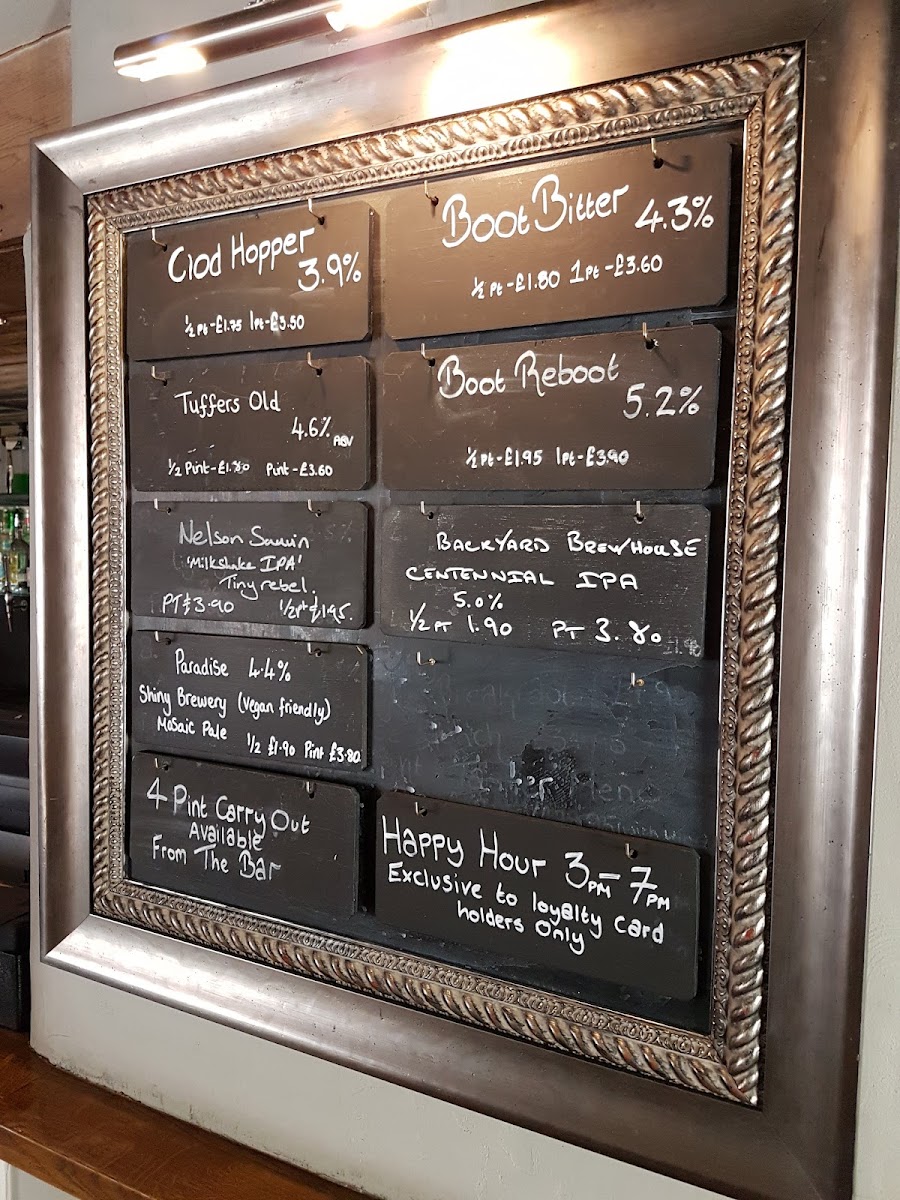 Clod Hopper
3.9%
½ Pt-£1.75 1pt-£3.50
Boot Bitter
4.3%
½ Pt-£1.80 1pt-£3.60
Tuffers Old
4.6% ABV
1/2 Pint-£1.80 Pint-£3.60
Boot Reboot
5.2%
½ Pt-£1.95 1pt-£3.90
Nelson Sauvin 5%
'Milkshake IPA'
Tiny rebel.
PT £3.90 1/2Pt £1.95.
BACKYARD BREWHOUSE
CENTENNIAL IPA
5.0%
1/2 PT 1.90 PT 3.80
Paradise 4.4%
Shiny Brewery (Vegan friendly)
Mosaic Pale 1/2 £1.90 Pint £3.80
4 Pint Carry Out
Available
From The Bar
Happy Hour 3PM-7PM
Exclusive to loyalty card
holders Only